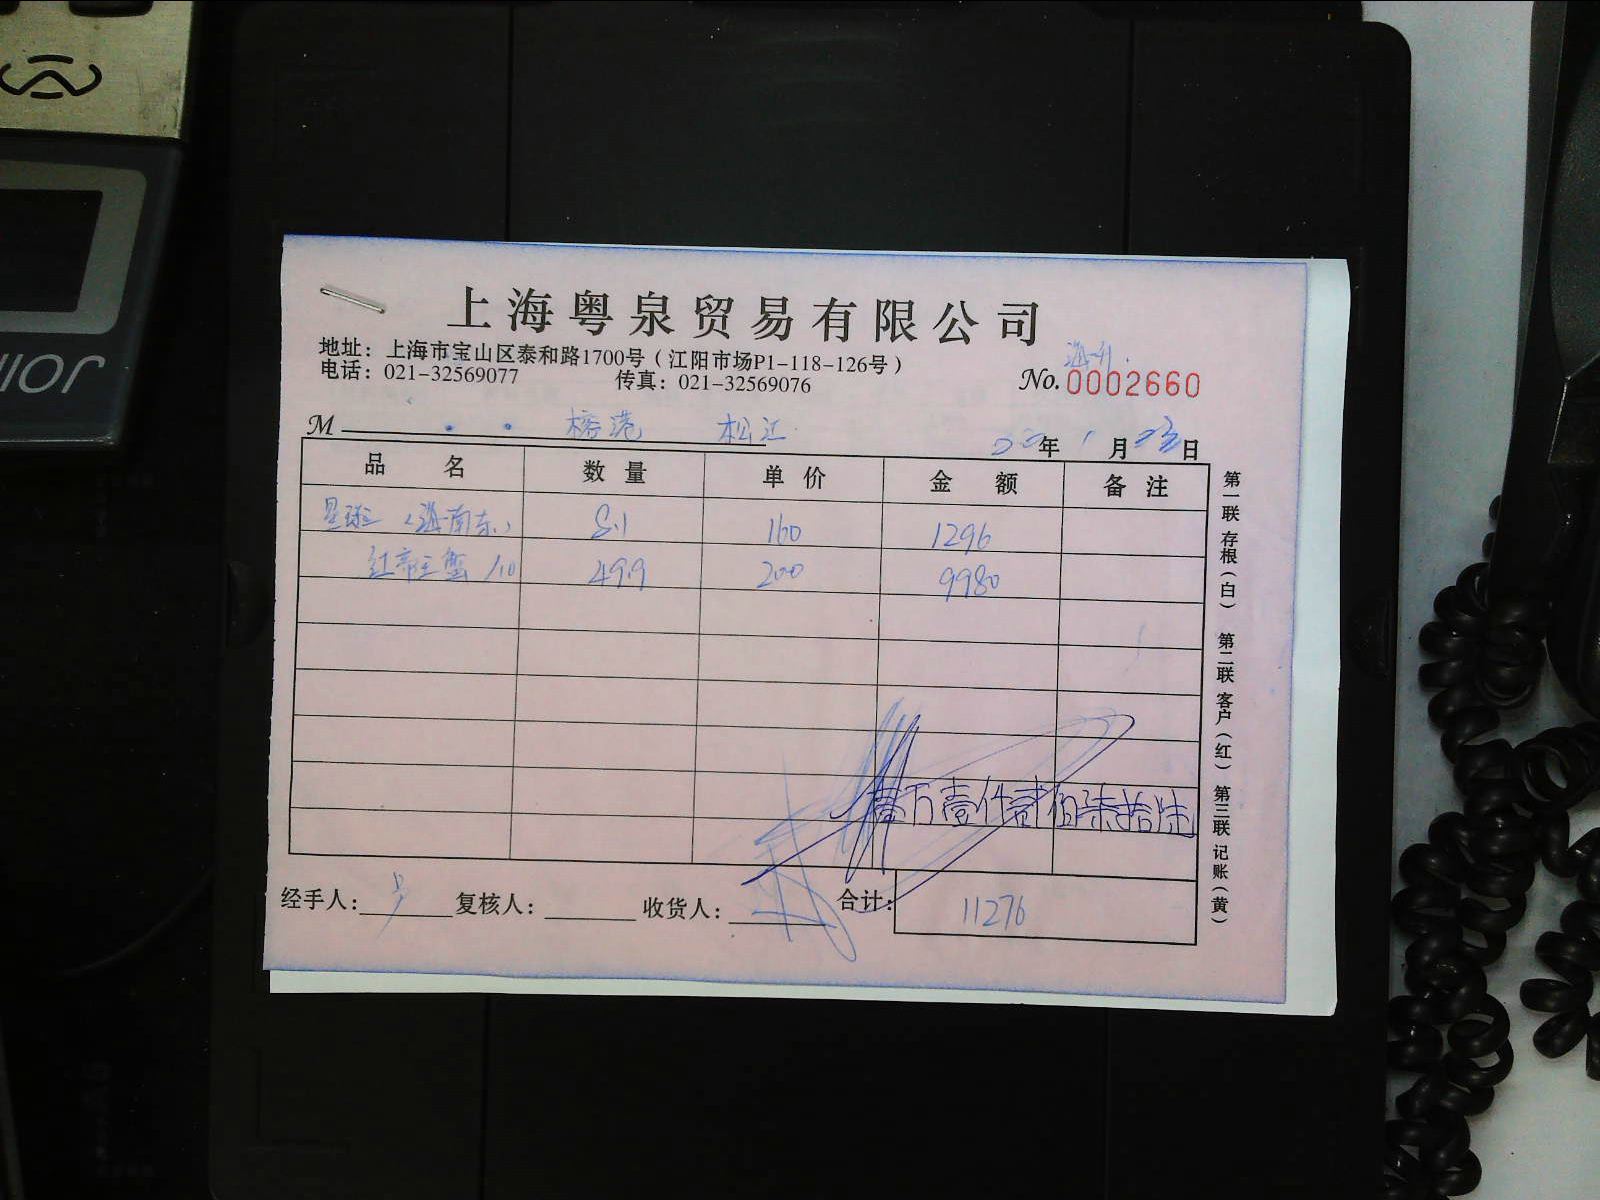 上海粤泉贸易有限公司
地址：上海市宝山区泰和路1700号（江阳市场P1-118-126号）
电话：021-32569077 传真：021-32569076
No.0002660
M 榕港 松江
年1月23日
品名 数量 单价 金额 备注
星斑（海南东） 8.1 160 1296
红帝王蟹/10 49.9 200 9980
壹万壹仟贰佰柒拾陆
经手人： 复核人： 收货人： 合计： 11276
第一联 存根（白） 第二联 客户（红） 第三联 记账（黄）
JOIN